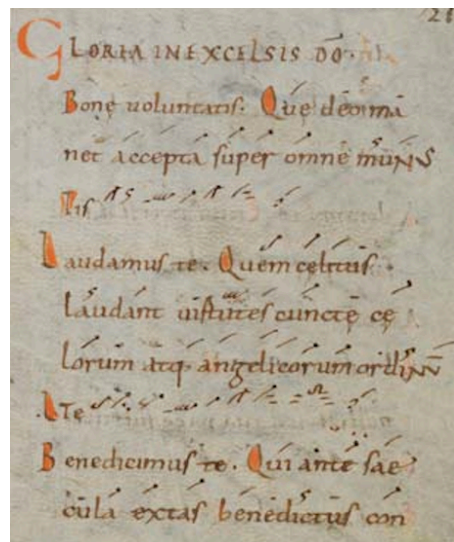 21
GLORIA IN EXCELSIS DO
Bone voluntatis. Que deo ma
net accepta super omne
Tis
Laudamus te. Quem celitus
laudant uirtutes cuncte ce
lorum atq angelicorum ordinū
Te
Benedicimus te. Qui ante sae
cula extas benedictus con